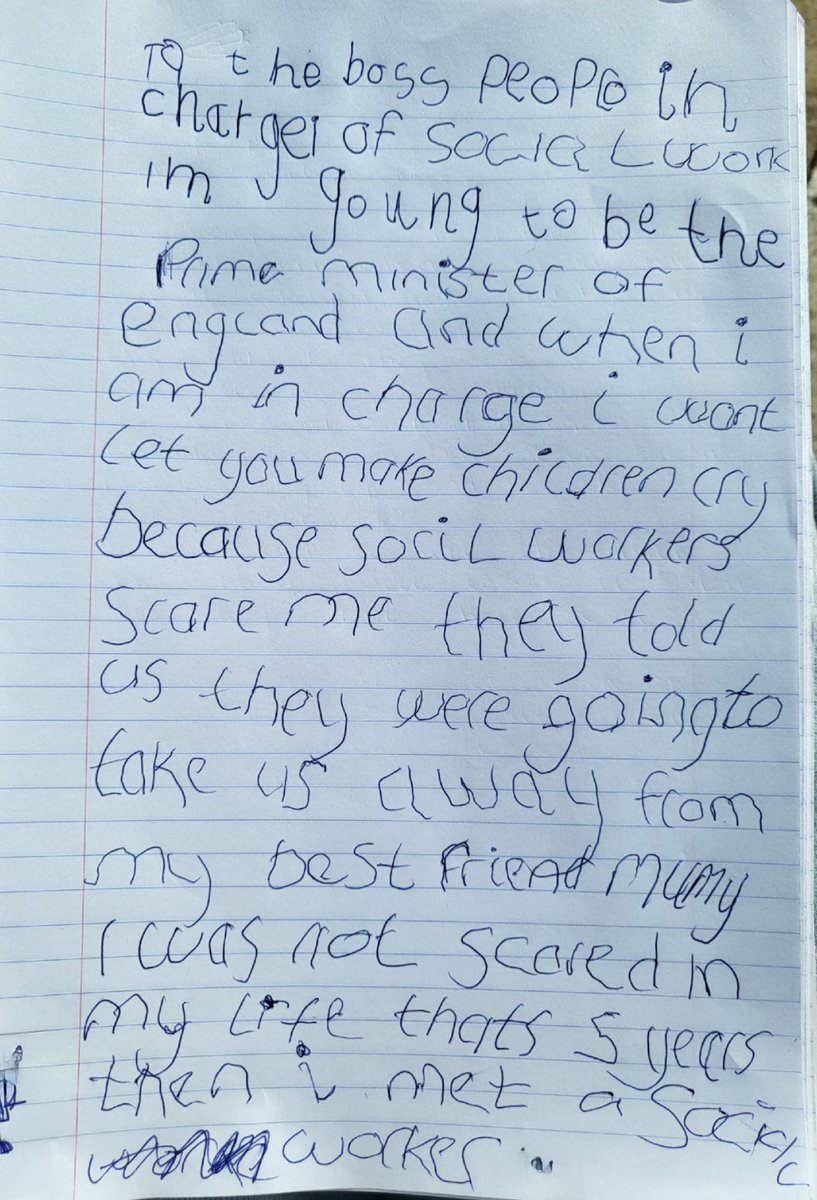 To the boss People in
charger of Social work
im goung to be the
Prime minister of
england and when i
am in charge i wont
let you make children cry
because socil workers
Scare me they told
us they were going to
take us away from
my best friend Mumy
I was not scared in
my life thats 5 years
then i met a Social
worker